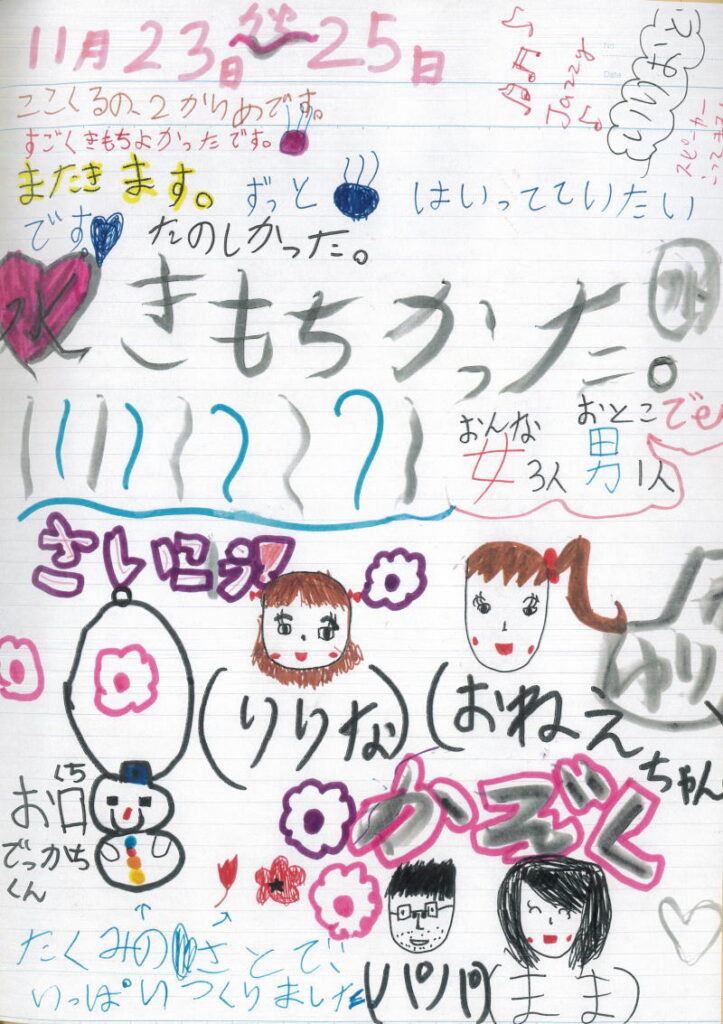 11月23日〜25日
Jazzy
スピーカー
ここくるの、2かいめです。
すごくきもちよかったです。
またきます。ずっと はいっていたい
です。たのしかった。
水 きもちかった。
おんな おとこ
女3人 男1人 でe
さいこう!
ゆり
(りりな) (おねえちゃん
くち
お口
でっかち
くん
かぞく
たくみのさとで、
いっぱいつくりました
(パパ) (まま)